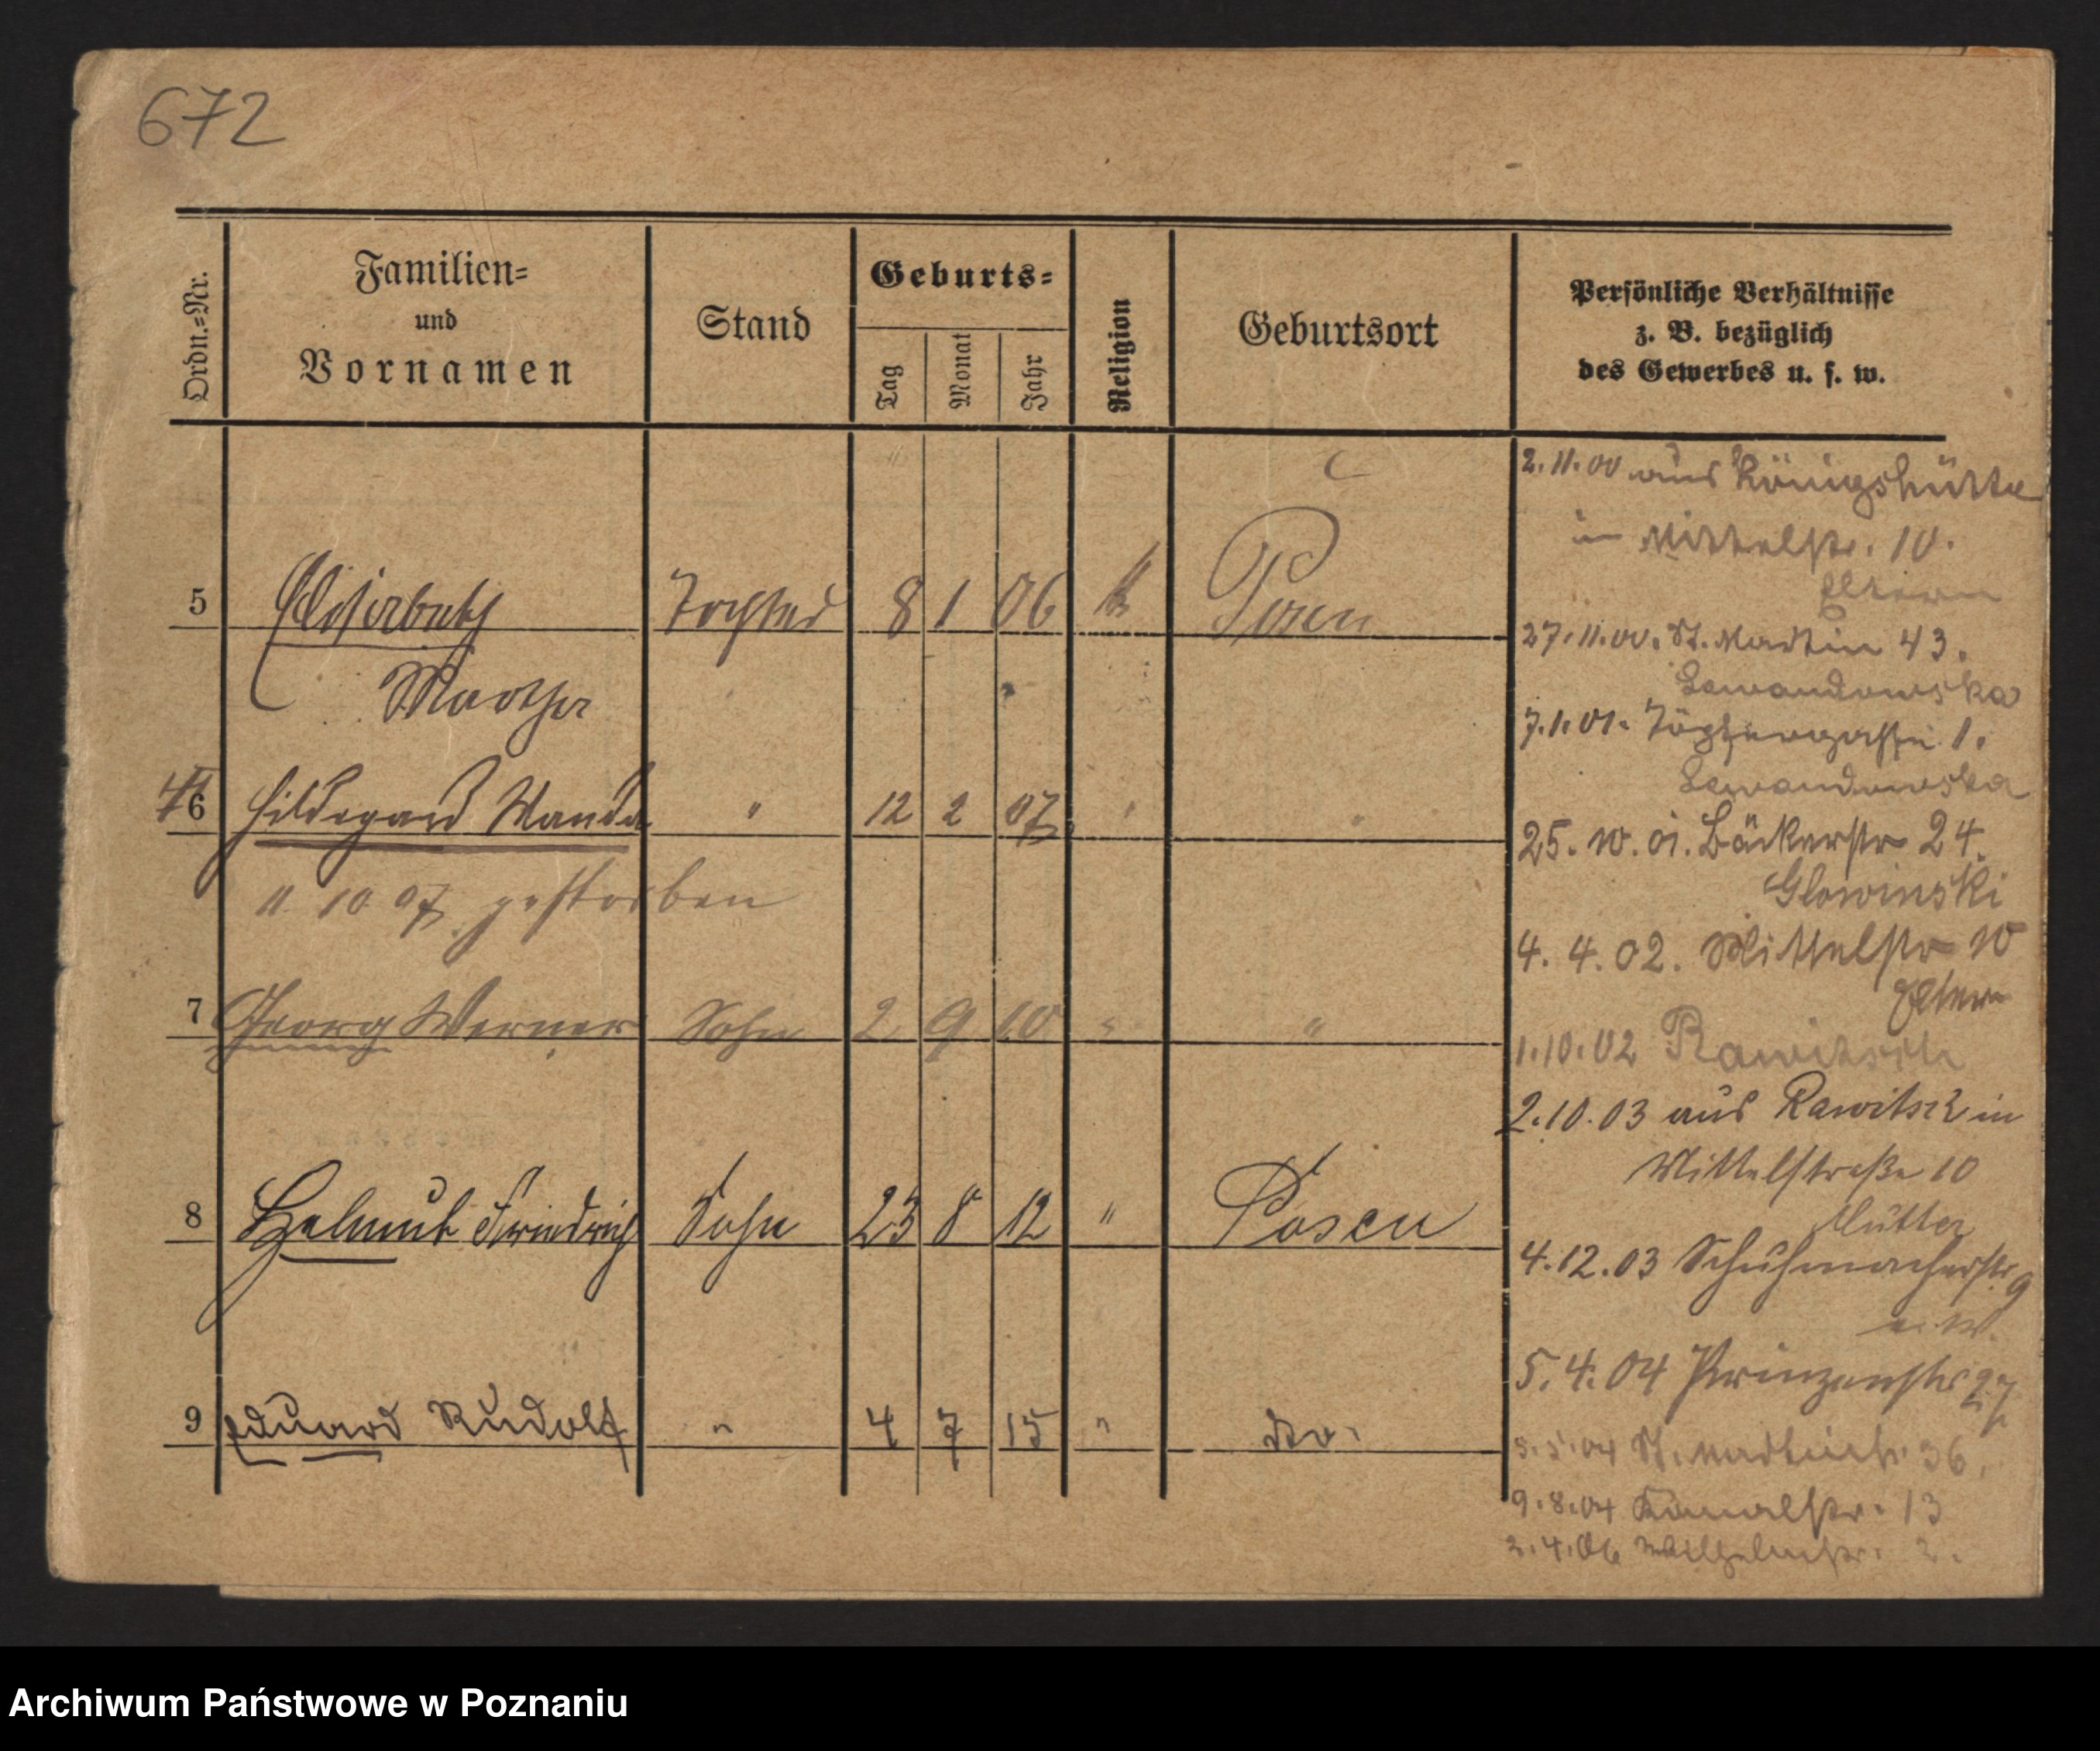 672
Ordn.=Nr.
Familien=
und
Vornamen
Stand
Geburts=
Tag
Monat
Jahr
Religion
Geburtsort
Persönliche Verhältnisse
z. B. bezüglich
des Gewerbes u. s. w.
5 Tochter 8 1 06 k Posen
Martha
6 Hildegard Wanda " 12 2 07 " "
11. 10 07 gestorben
7 Georg Werner Sohn 2 9 10 " "
8 Helmut Friedrich Sohn 23 8 12 " Posen
9 Eduard Rudolf " 4 7 15 " do.
2.11.00 aus Königshütte
in Mittelstr. 10.
Eltern
27.11.00. St. Martin 43.
Lewandowska
7.1.01. 1.
Lewandowska
25. 10. 01. Bäckerstr 24.
Glowinski
4. 4. 02. Mittelstr 10
Eltern
1.10.02 Rawitsch
2.10.03 aus Rawitsch in
Mittelstraße 10
Mutter
4.12.03 Schuhmacherstr. 9
5.4.04 Prinzenstr 27
5.5.04 St. Martinstr. 36.
9.8.04 Kanalstr. 13
2.4.06 Wilhelmstr. 2.
Archiwum Państwowe w Poznaniu